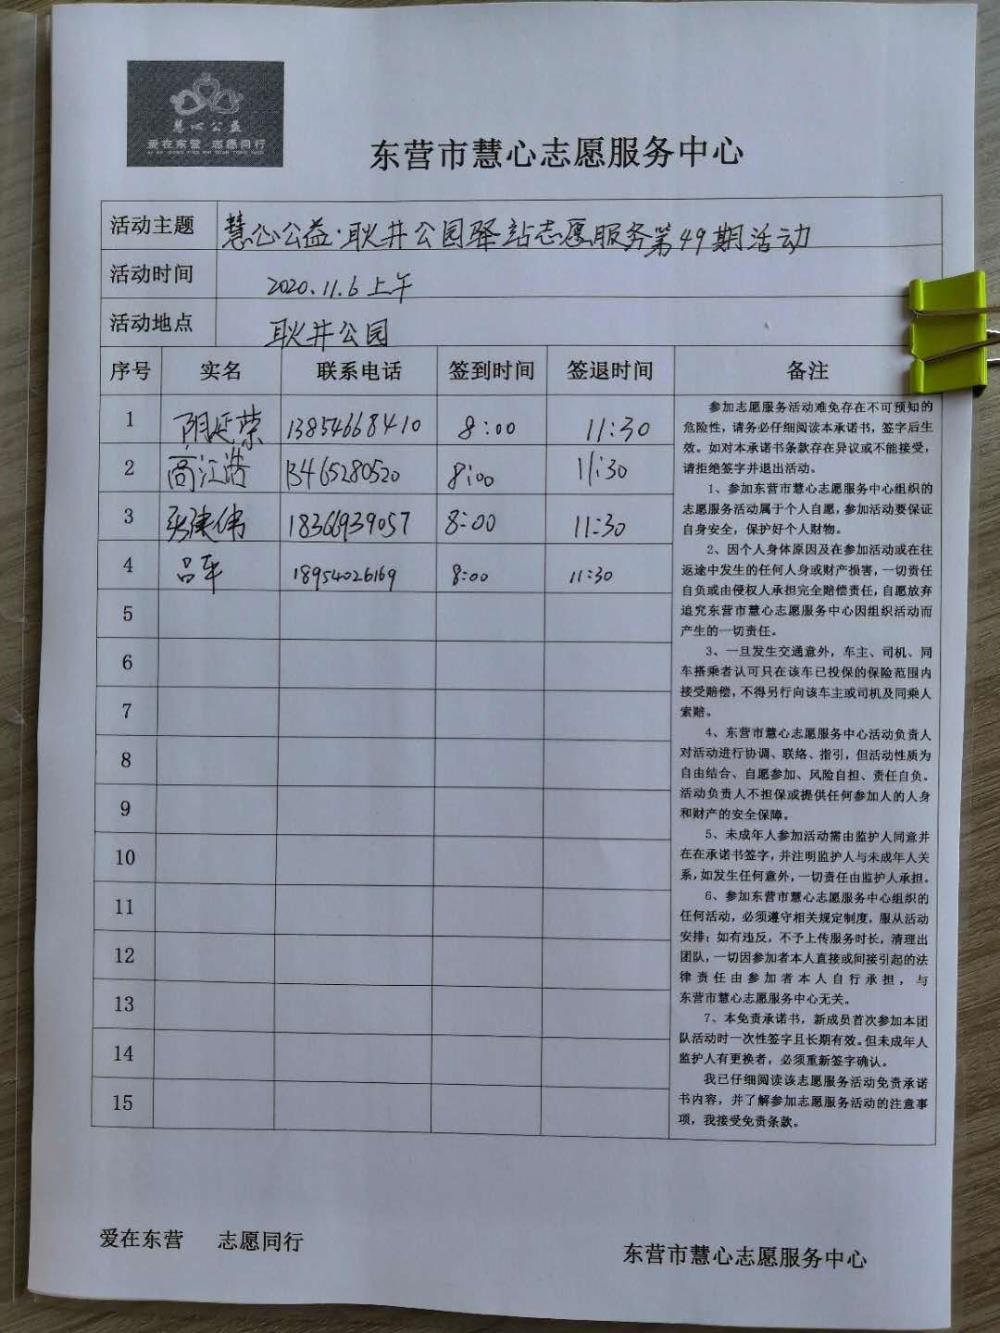 慧心公益
爱在东营 志愿同行
东营市慧心志愿服务中心
活动主题 慧心公益·耿井公园驿站志愿服务第49期活动
活动时间 2020.11.6上午
活动地点 耿井公园
序号 实名 联系电话 签到时间 签退时间 备注
1 阴延荣 13854668410 8:00 11:30
2 高江浩 13465280520 8:00 11:30
3 张建伟 18366939057 8:00 11:30
4 吕军 18954026169 8:00 11:30
5
6
7
8
9
10
11
12
13
14
15
参加志愿服务活动难免存在不可预知的
危险性，请务必仔细阅读本承诺书，签字后生
效。如对本承诺书条款存在异议或不能接受，
请拒绝签字并退出活动。
1、参加东营市慧心志愿服务中心组织的
志愿服务活动属于个人自愿，参加活动要保证
自身安全，保护好个人财物。
2、因个人身体原因及在参加活动或在往
返途中发生的任何人身或财产损害，一切责任
自负或由侵权人承担完全赔偿责任，自愿放弃
追究东营市慧心志愿服务中心因组织活动而
产生的一切责任。
3、一旦发生交通意外，车主、司机、同
车搭乘者认可只在该车已投保的保险范围内
接受赔偿，不得另行向该车主或司机及同乘人
索赔。
4、东营市慧心志愿服务中心活动负责人
对活动进行协调、联络、指引，但活动性质为
自由结合、自愿参加、风险自担、责任自负。
活动负责人不担保或提供任何参加人的人身
和财产的安全保障。
5、未成年人参加活动需由监护人同意并
在在承诺书签字，并注明监护人与未成年人关
系，如发生任何意外，一切责任由监护人承担。
6、参加东营市慧心志愿服务中心组织的
任何活动，必须遵守相关规定制度，服从活动
安排；如有违反，不予上传服务时长，清理出
团队，一切因参加者本人直接或间接引起的法
律责任由参加者本人自行承担，与
东营市慧心志愿服务中心无关。
7、本免责承诺书，新成员首次参加本团
队活动时一次性签字且长期有效。但未成年人
监护人有更换者，必须重新签字确认。
我已仔细阅读该志愿服务活动免责承诺
书内容，并了解参加志愿服务活动的注意事
项，我接受免责条款。
爱在东营 志愿同行
东营市慧心志愿服务中心